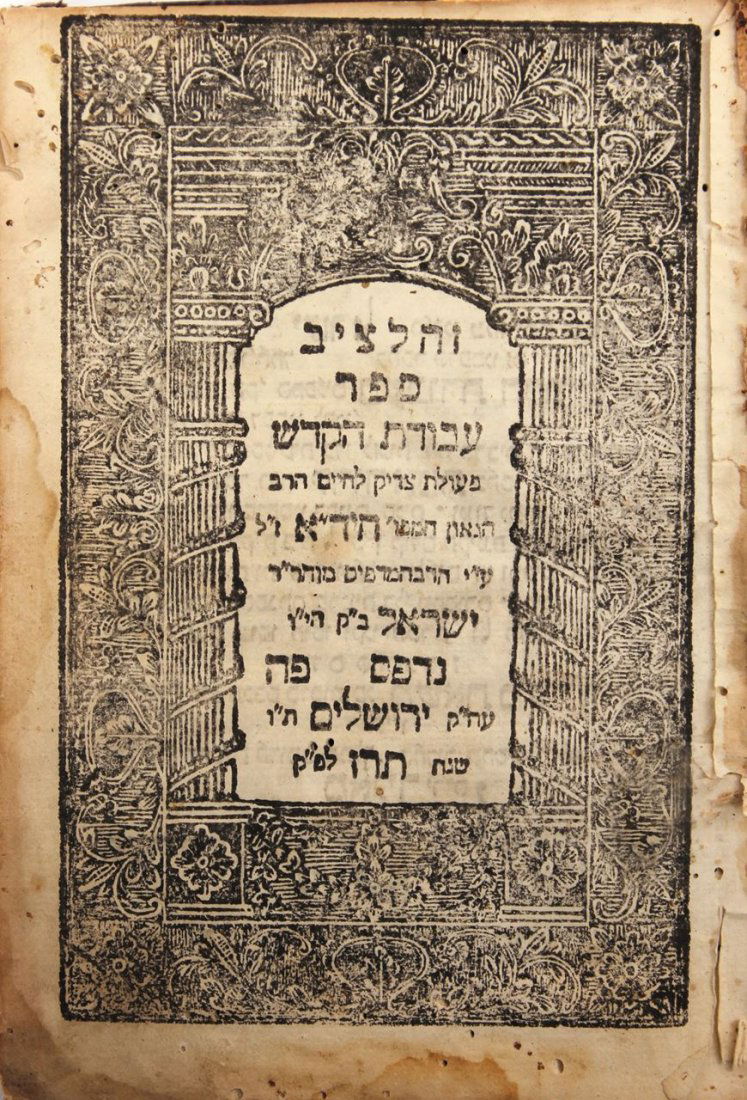 זהלציב
ספר
עבודת הקדש
פעולת צדיק לחיים הרב
הגאון המפו' חיד״א ז״ל
ע״י הרבהמדפיס מוהר״ר
ישראל ב״ק הי״ו
נדפס פה
עה״ק ירושלים ת״ו
שנת תרז לפ״ק